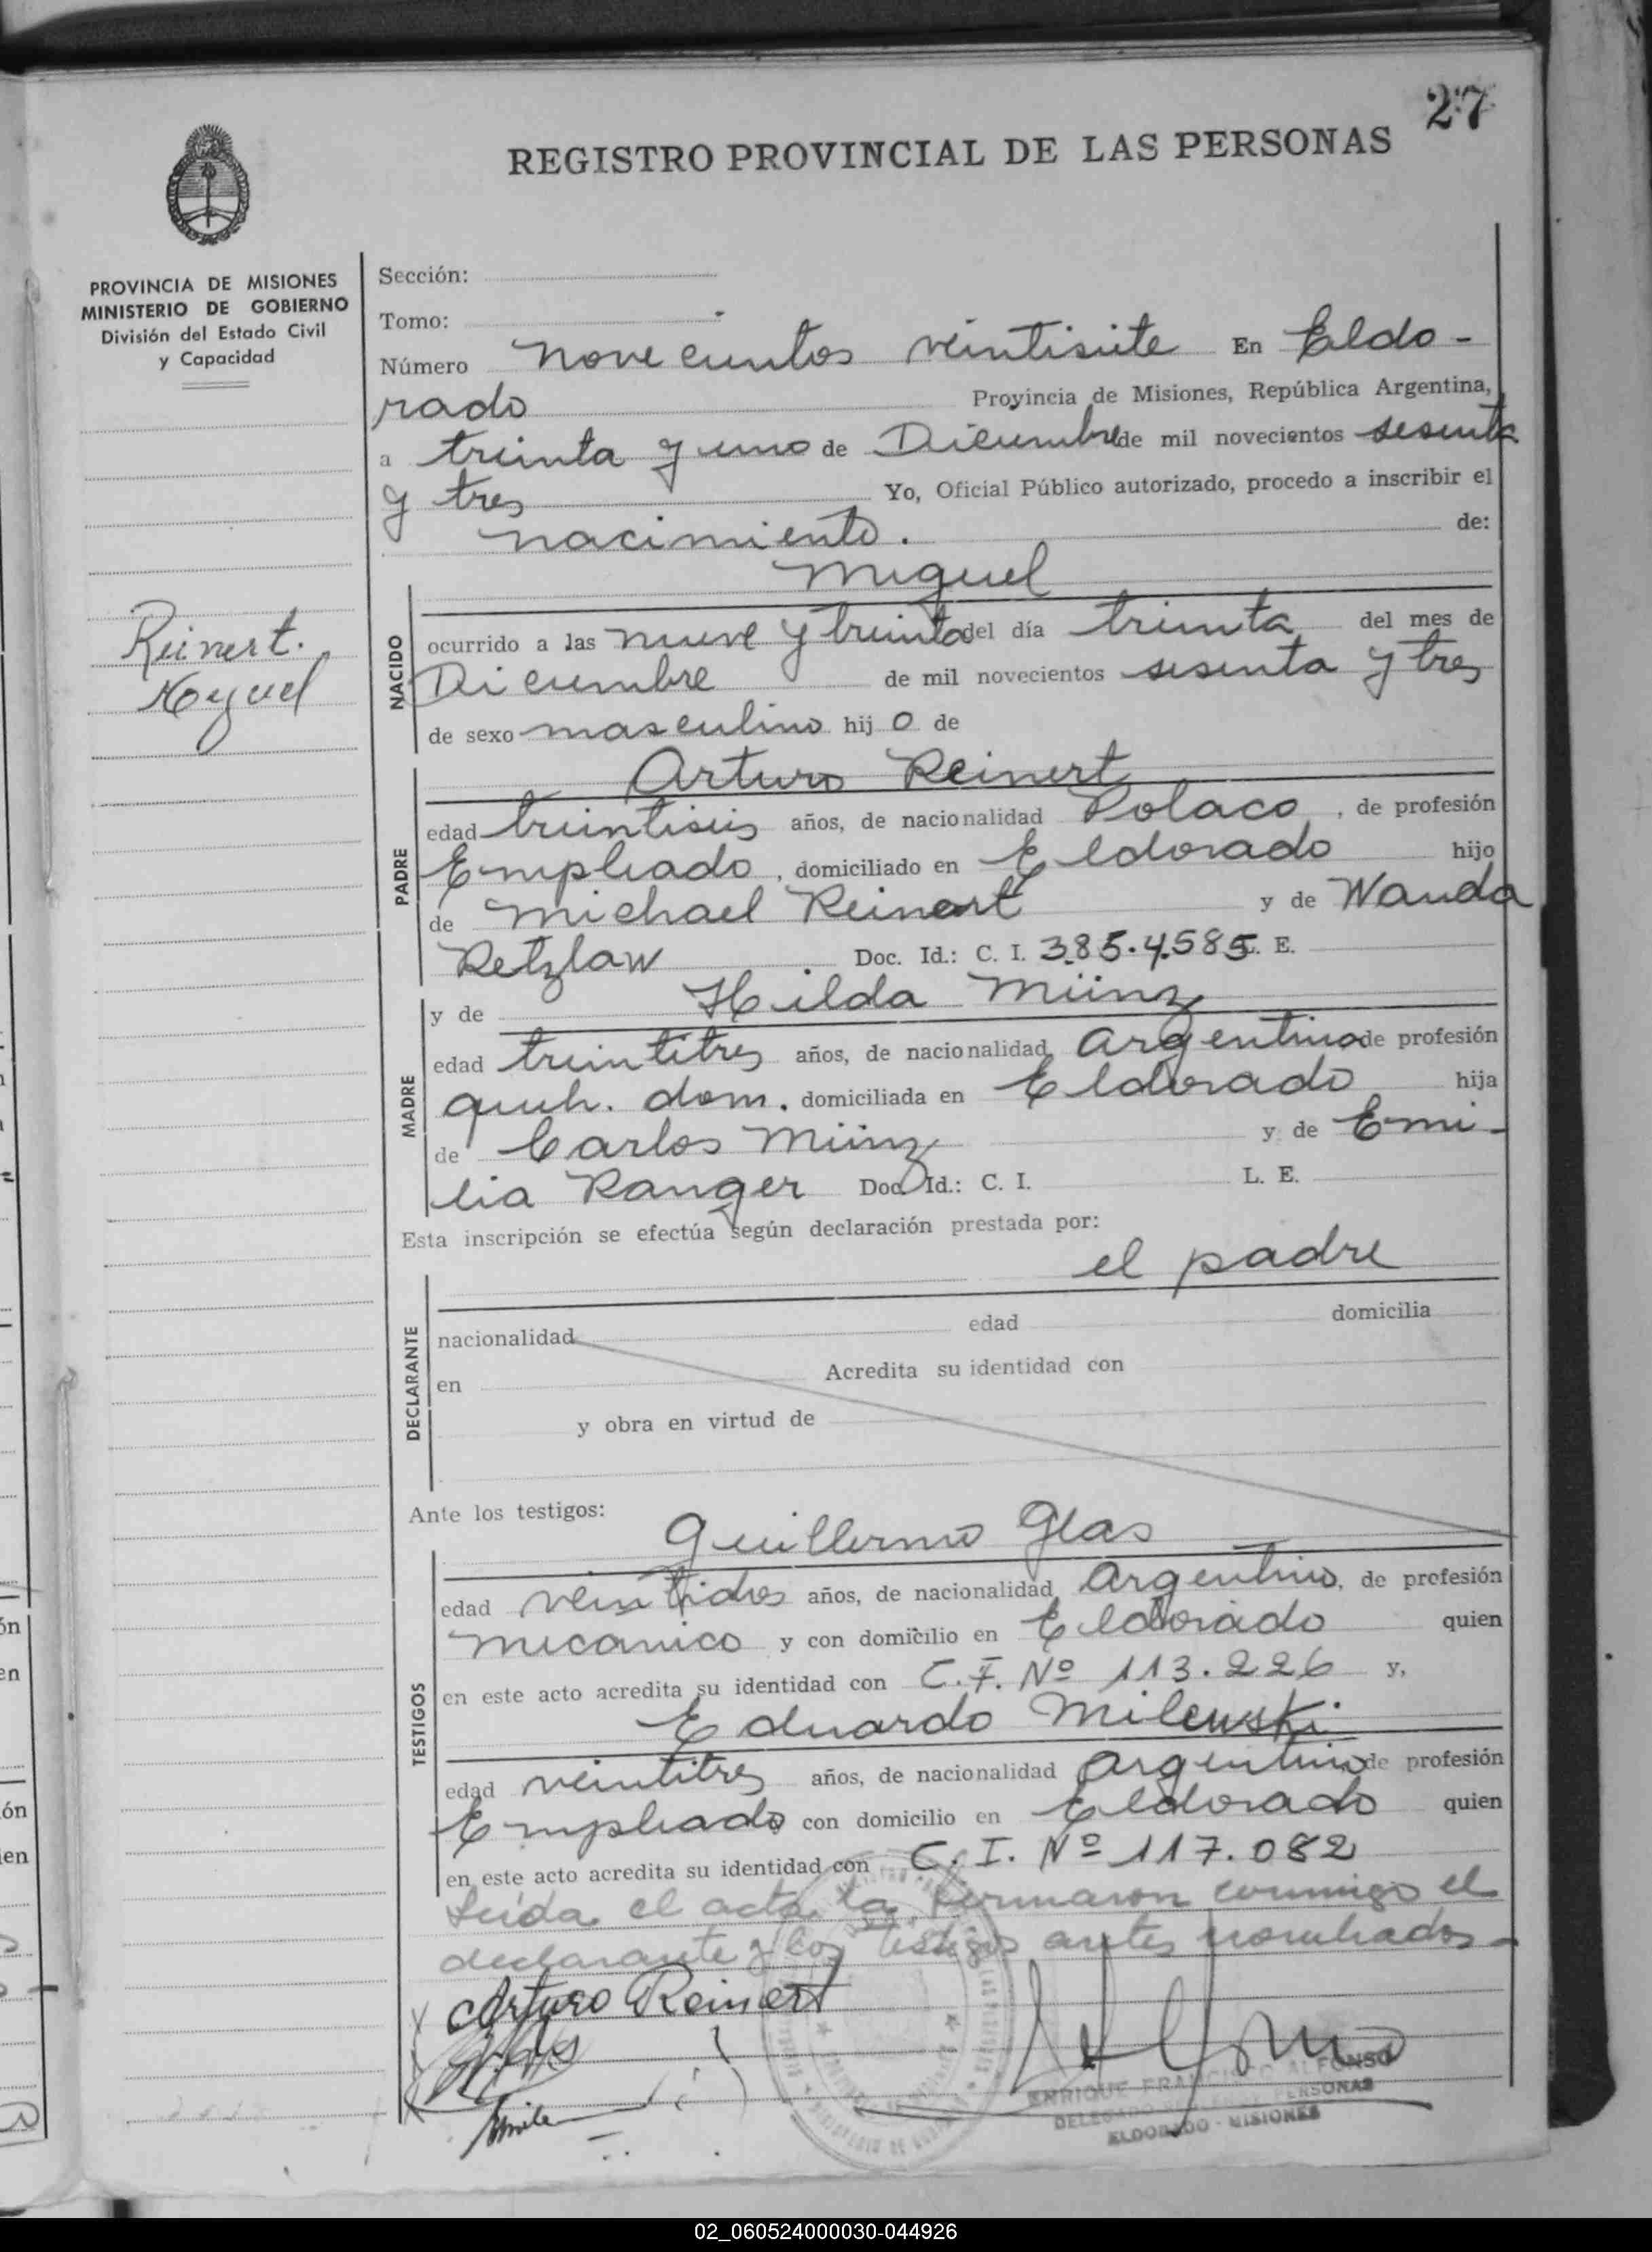 27
REGISTRO PROVINCIAL DE LAS PERSONAS
PROVINCIA DE MISIONES
MINISTERIO DE GOBIERNO
División del Estado Civil
y Capacidad
Reinert.
Miguel
Sección:
Tomo:
Número novecientos veintisiete En Eldo-
rado Provincia de Misiones, República Argentina,
a treinta y uno de Diciembre de mil novecientos sesenta
y tres Yo, Oficial Público autorizado, procedo a inscribir el
nacimiento. de:
Miguel
NACIDO
ocurrido a las nueve y treinta del día treinta del mes de
Diciembre de mil novecientos sesenta y tres
de sexo masculino hijo de
Arturo Reinert
PADRE
edad treintiseis años, de nacionalidad Polaco, de profesión
Empleado, domiciliado en Eldorado hijo
de Michael Reinert y de Wanda
Retzlaw Doc. Id.: C. I. 385.4.585 L. E.
y de Hilda Münz
MADRE
edad treintitres años, de nacionalidad Argentina de profesión
queh. dom. domiciliada en Eldorado hija
de Carlos Münz y de Emi-
lia Ranger Doc. Id.: C. I. L. E.
Esta inscripción se efectúa según declaración prestada por:
el padre
DECLARANTE
nacionalidad edad domicilia
en Acredita su identidad con
y obra en virtud de
Ante los testigos:
Guillermo Glas
TESTIGOS
edad veintidos años, de nacionalidad Argentino, de profesión
mecanico y con domicilio en Eldorado quien
en este acto acredita su identidad con C.I. Nº 113.226 y,
Eduardo Milewski
edad veintitres años, de nacionalidad Argentino de profesión
Empleado con domicilio en Eldorado quien
en este acto acredita su identidad con C. I. Nº 117.082
Leída el acta la firmaron conmigo el
declarante y los testigos antes nombrados-
Arturo Reinert
Glas
ENRIQUE FRANCISCO ALFONSO
PERSONAS
ELDORADO - MISIONES
02_060524000030-044926